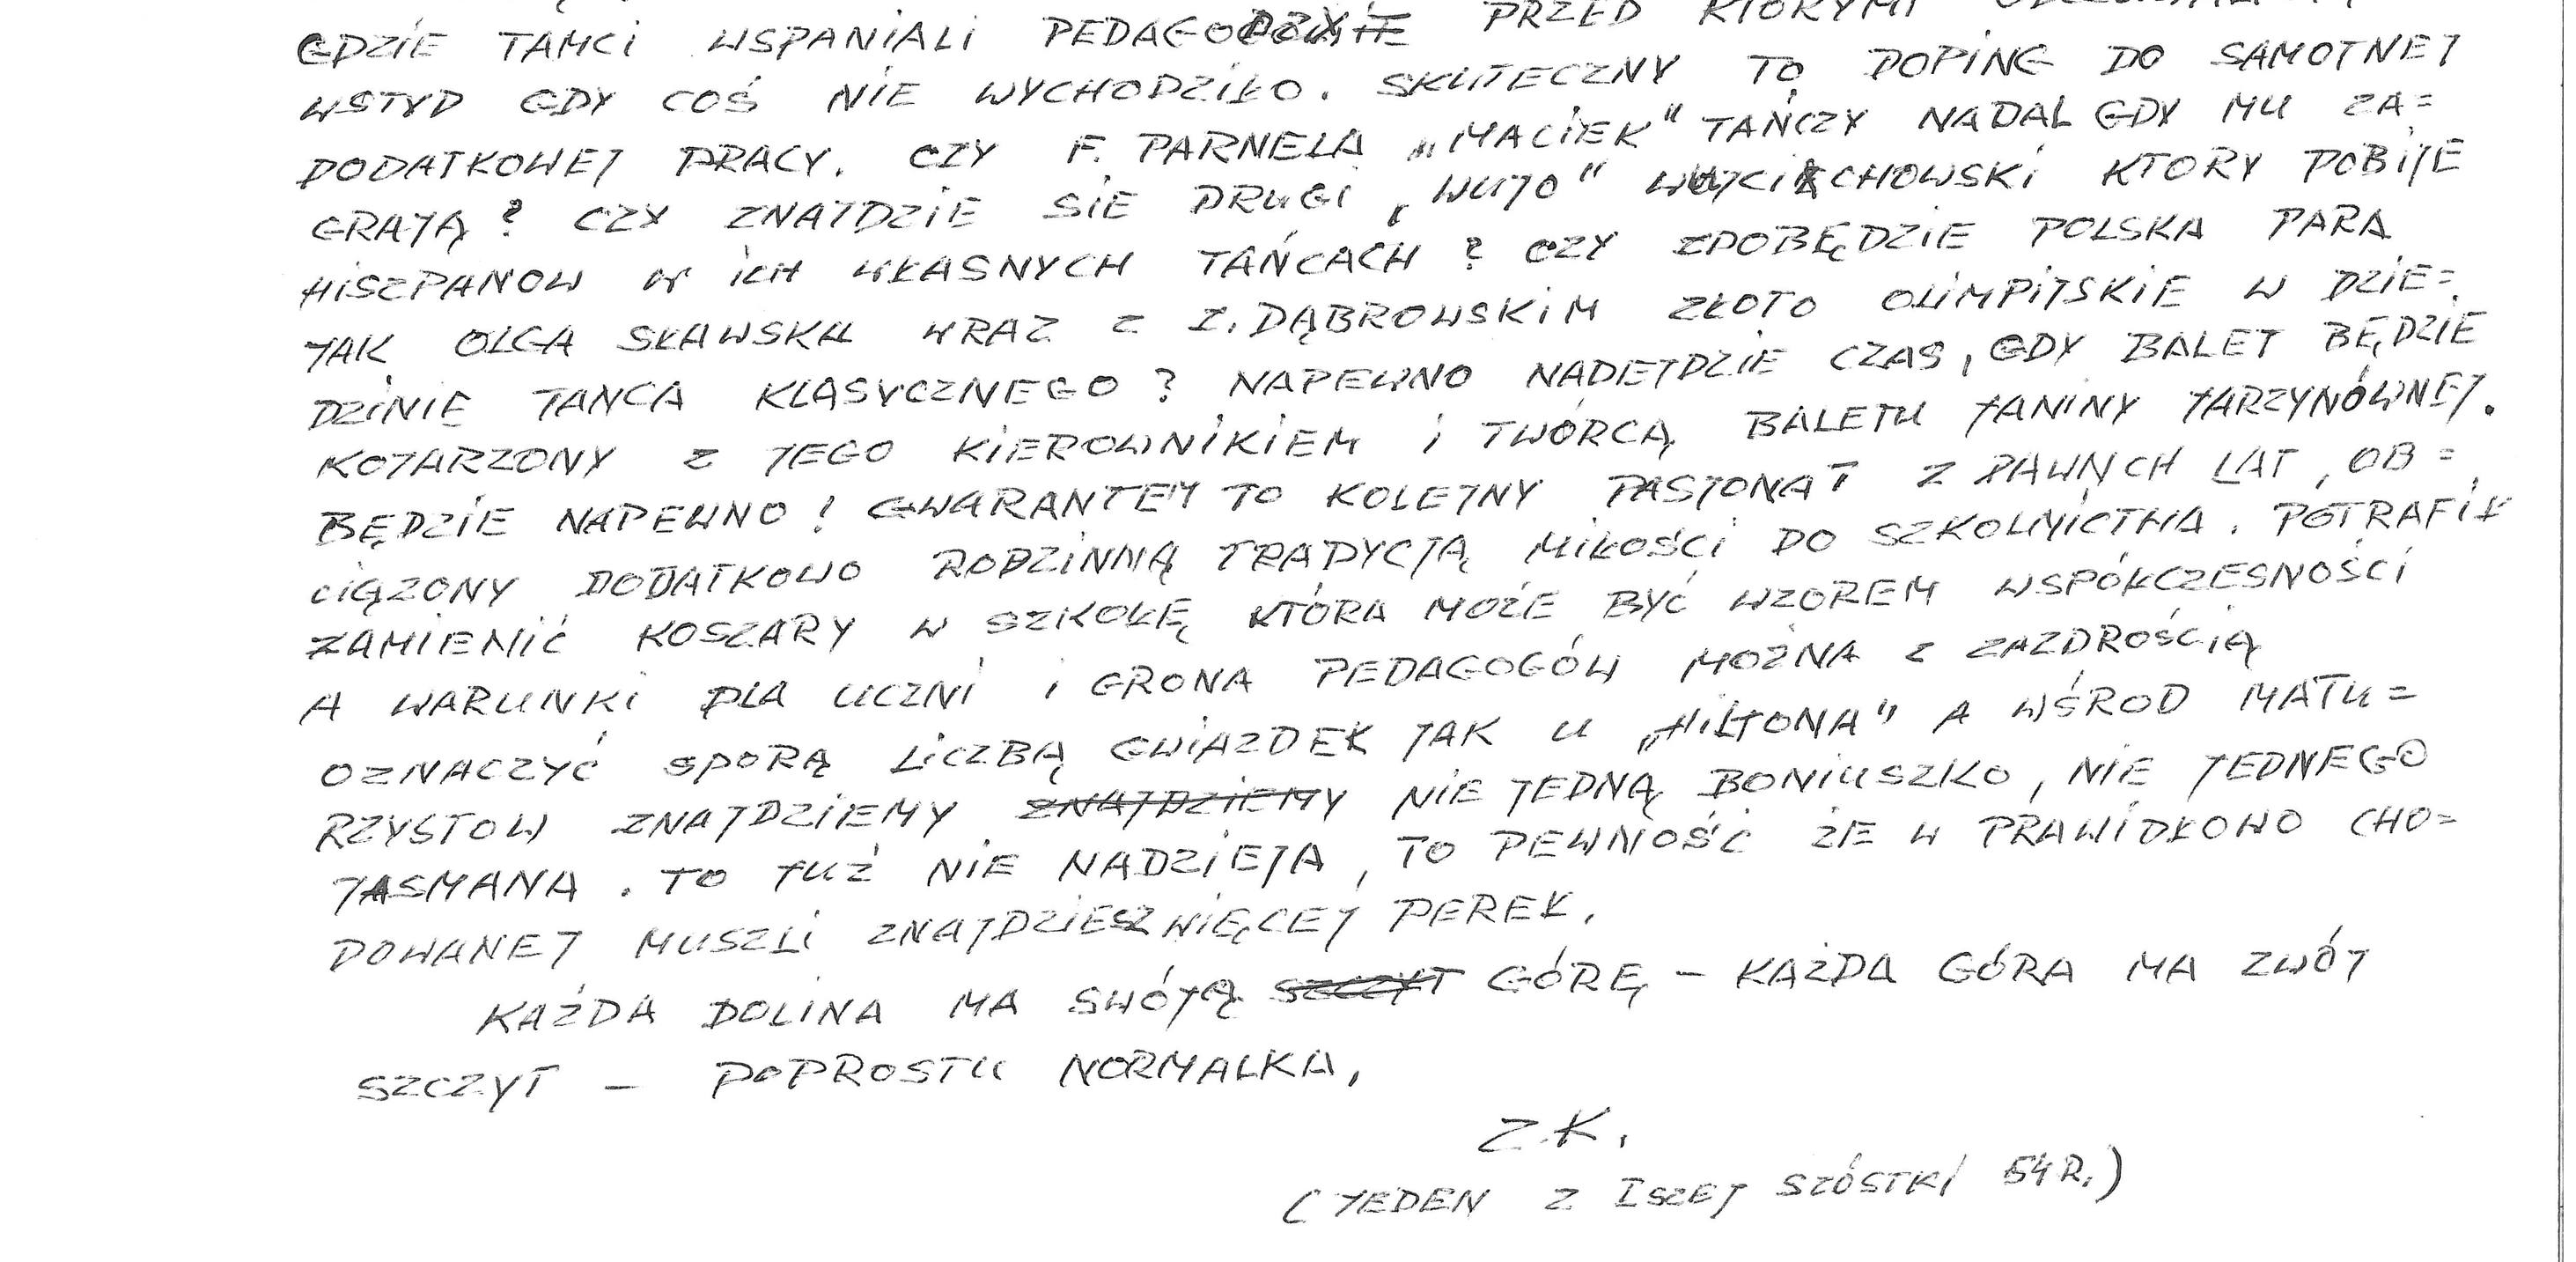 GDZIE TAMCI WSPANIALI PEDAGODZY PRZED KTÓRYMI
WSTYD GDY COŚ NIE WYCHODZIŁO. SKUTECZNY TO DOPING DO SAMOTNEJ
DODATKOWEJ PRACY. CZY F. PARNELA „MACIEK" TAŃCZY NADAL GDY MU ZA=
GRAJĄ? CZY ZNAJDZIE SIE DRUGI „WUJO" WOJCIECHOWSKI KTORY POBIJE
HISZPANOW W ICH WŁASNYCH TAŃCACH? CZY ZDOBĘDZIE POLSKA PARA
JAK OLGA SŁAWSKA WRAZ Z Z. DĄBROWSKIM ZŁOTO OLIMPIJSKIE W DZIE=
DZINIE TANCA KLASYCZNEGO? NAPEWNO NADEJDZIE CZAS, GDY BALET BĘDZIE
KOJARZONY Z JEGO KIEROWNIKIEM I TWÓRCĄ BALETU JANINY JARZYNÓWNEJ.
BĘDZIE NAPEWNO! GWARANTEM TO KOLEJNY PASJONAT Z DAWNCH LAT, OB=
CIĄZONY DODATKOWO RODZINNĄ TRADYCJĄ MIŁOŚCI DO SZKOLNICTWA. POTRAFIŁ
ZAMIENIĆ KOSZARY W SZKOŁĘ KTÓRA MOŻE BYĆ WZOREM WSPÓŁCZESNOŚCI
A WARUNKI DLA UCZNI I GRONA PEDAGOGÓW MOŻNA Z ZAZDROŚCIĄ
OZNACZYĆ SPORĄ LICZBĄ GWIAZDEK JAK U „HILTONA" A WŚROD MATU=
RZYSTOW ZNAJDZIEMY ZNAJDZIEMY NIE JEDNĄ BONIUSZKO, NIE JEDNEGO
JASMANA. TO JUŻ NIE NADZIEJA, TO PEWNOŚĆ ŻE W PRAWIDŁOWO CHO=
DOWANEJ MUSZLI ZNAJDZIESZ WIĘCEJ PEREŁ.
KAŻDA DOLINA MA SWÓJĄ SZCZYT GÓRĘ – KAŻDA GÓRA MA ZWÓJ
SZCZYT – POPROSTU NORMALKA,
Z.K.
(JEDEN Z ISZEJ SZÓSTKI 54 R.)